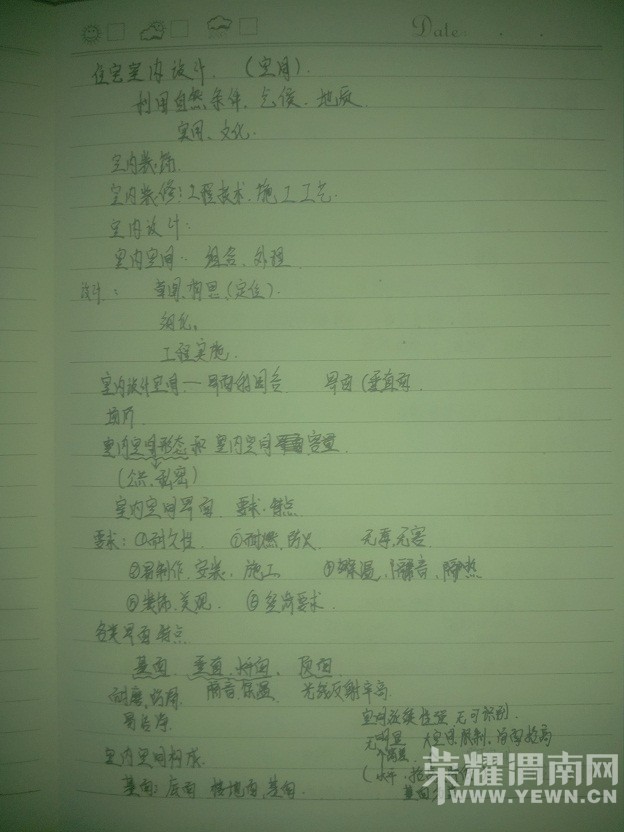 Date
住宅室内设计 (空间)
利用自然条件、气候、地质
实用、文化
室内装饰
室内装修:工程技术、施工工艺
室内设计:
室内空间: 组合、处理
设计: 草图、构思、(定位)
细化。
工程实施
室内设计空间—界面的围合 界面(垂直面
室内空间形态和室内空间容量
(公共、私密)
室内空间界面 要求、特点
要求:①耐久性 ②耐燃、防火 无毒、无害
③易制作、安装、施工 保温、隔音、隔热
⑤装饰、美观 ⑥经济要求
各类界面特点
基面 垂直 顶面
耐磨、防滑 隔音、保温 光线反射率高
易清洁
无可识别
室内空间构成
基面: 底面 基面
荣耀渭南网
WWW.YEWN.CN